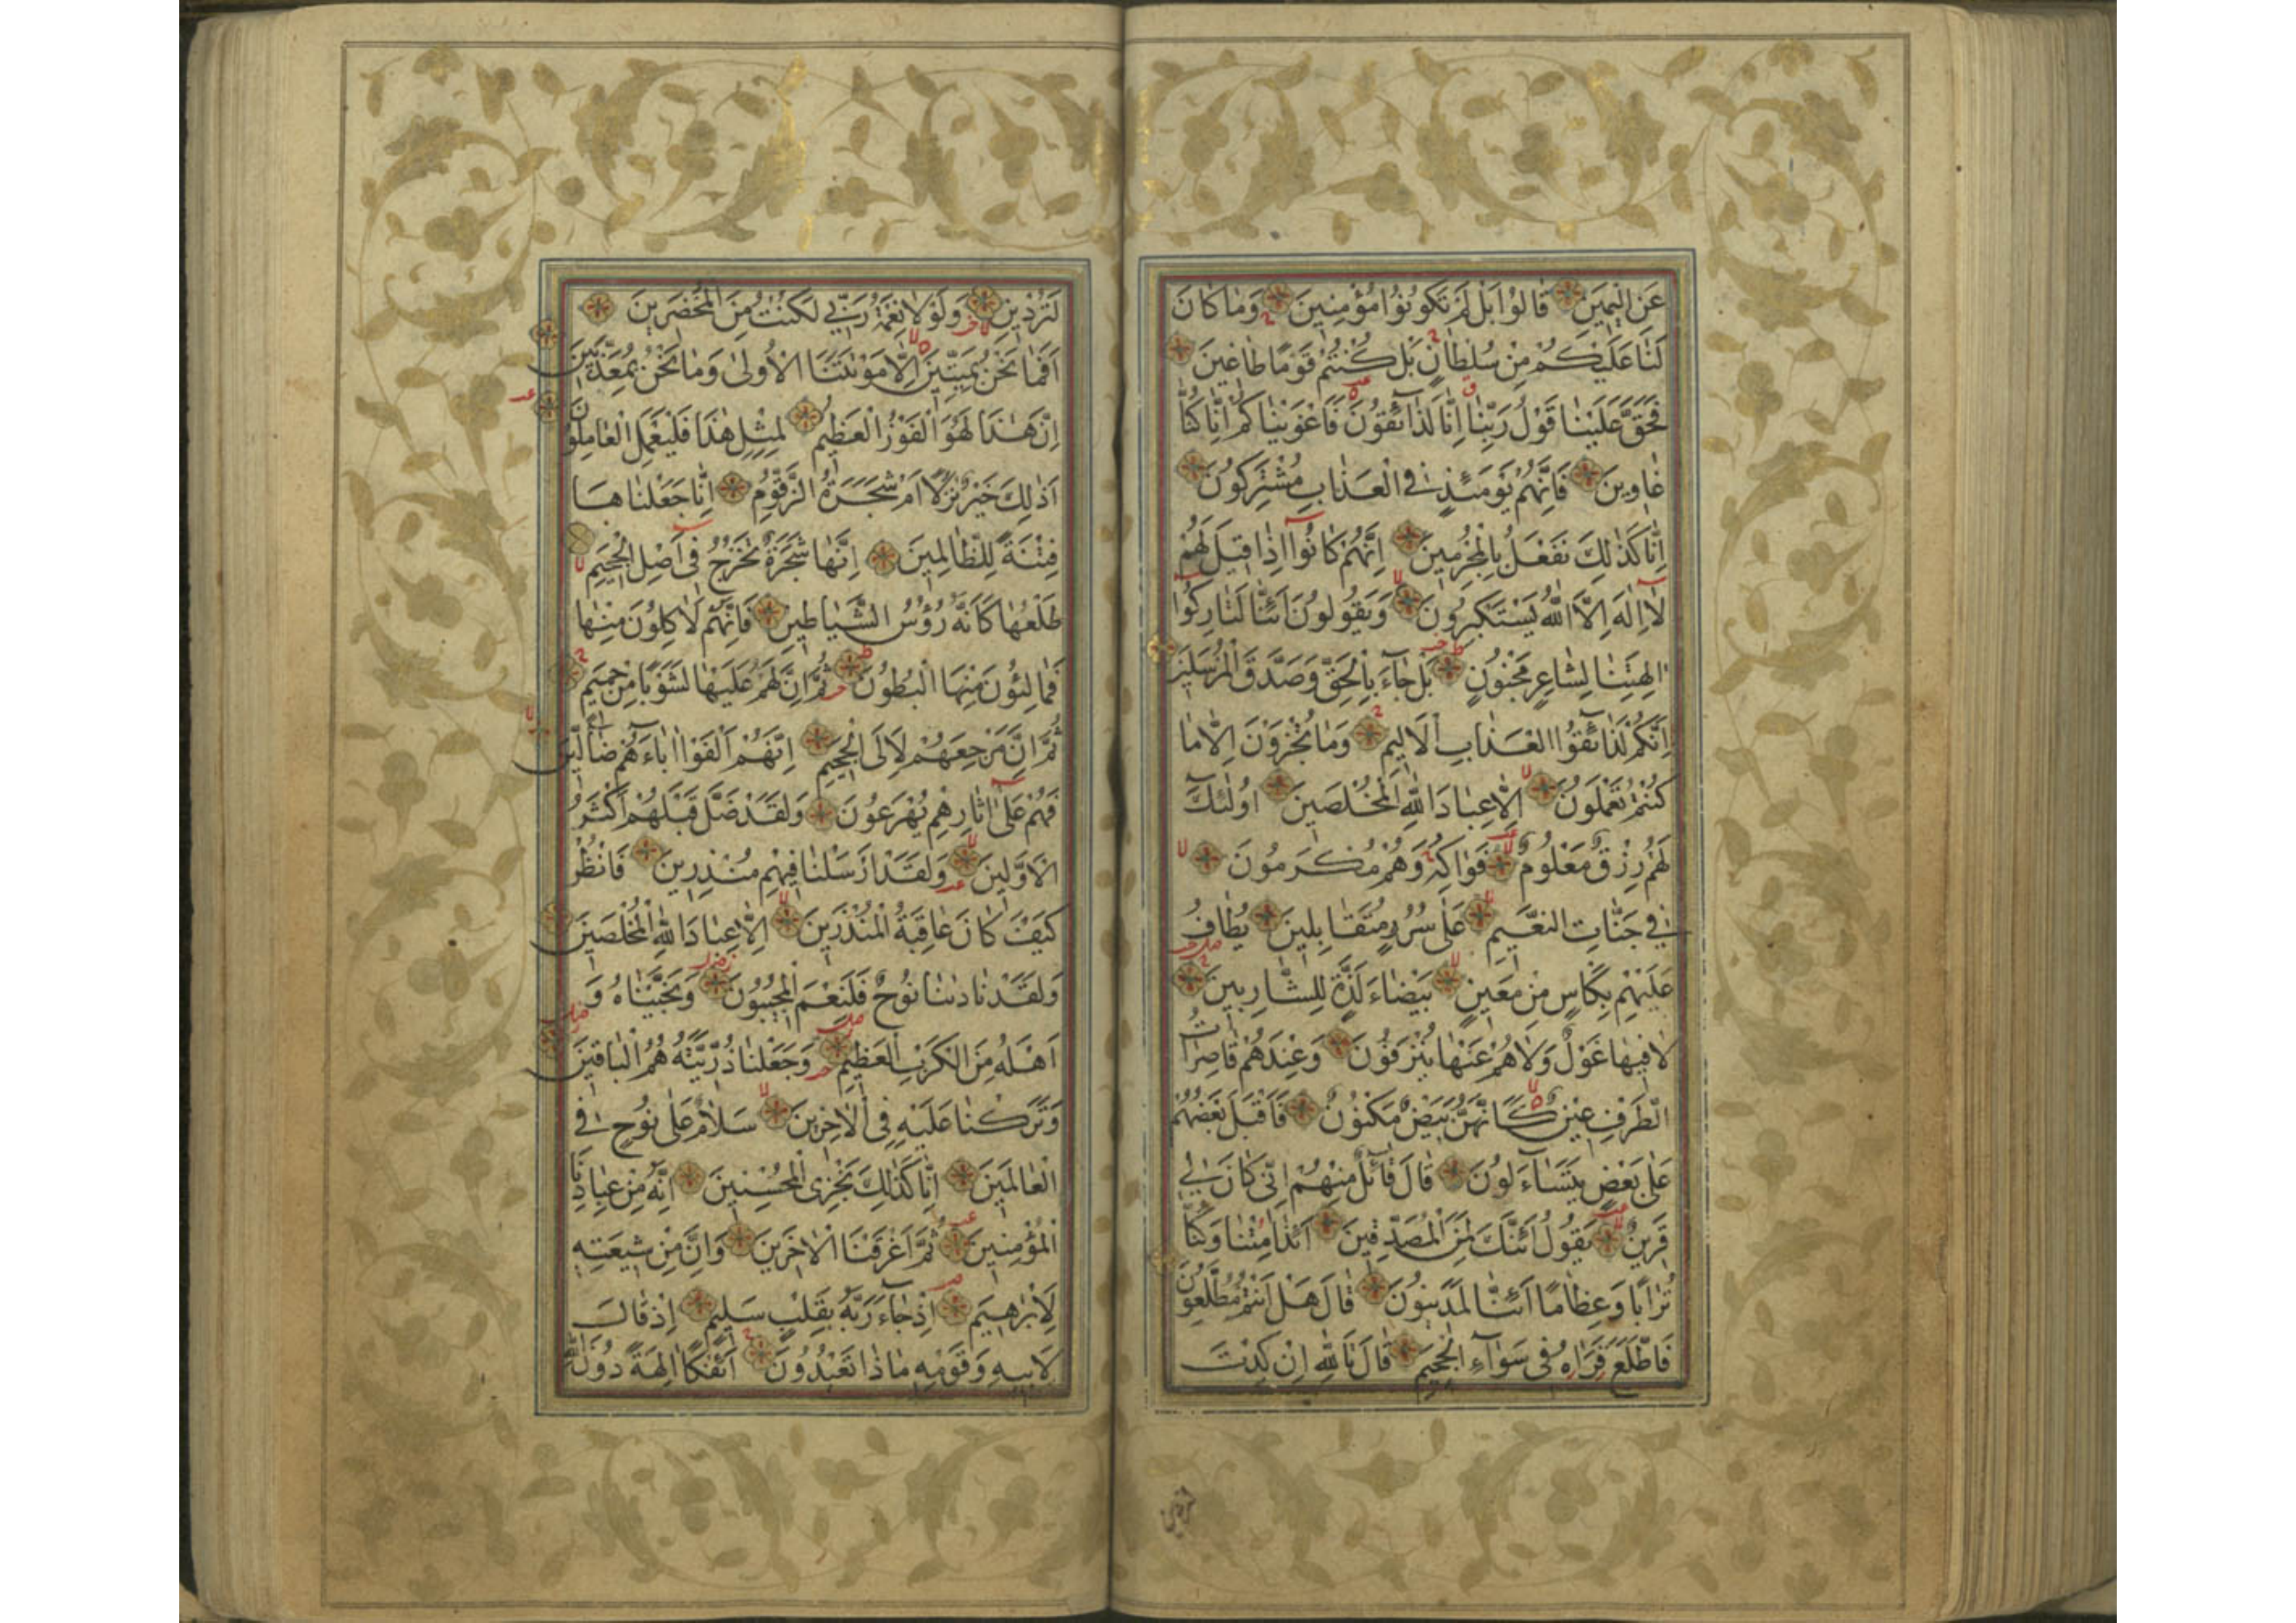 عَنِ الْيَمِينِ قَالُوا بَلْ لَمْ تَكُونُوا مُؤْمِنِينَ وَمَا كَانَ
لَنَا عَلَيْكُمْ مِنْ سُلْطَانٍ بَلْ كُنْتُمْ قَوْمًا طَاغِينَ
فَحَقَّ عَلَيْنَا قَوْلُ رَبِّنَا إِنَّا لَذَائِقُونَ فَأَغْوَيْنَاكُمْ إِنَّا كُنَّا
غَاوِينَ فَإِنَّهُمْ يَوْمَئِذٍ فِي الْعَذَابِ مُشْتَرِكُونَ
إِنَّا كَذَلِكَ نَفْعَلُ بِالْمُجْرِمِينَ إِنَّهُمْ كَانُوا إِذَا قِيلَ لَهُمْ
لَا إِلَهَ إِلَّا اللَّهُ يَسْتَكْبِرُونَ وَيَقُولُونَ أَئِنَّا لَتَارِكُوا
آلِهَتِنَا لِشَاعِرٍ مَجْنُونٍ بَلْ جَاءَ بِالْحَقِّ وَصَدَّقَ الْمُرْسَلِينَ
إِنَّكُمْ لَذَائِقُوا الْعَذَابِ الْأَلِيمِ وَمَا تُجْزَوْنَ إِلَّا مَا
كُنْتُمْ تَعْمَلُونَ إِلَّا عِبَادَ اللَّهِ الْمُخْلَصِينَ أُولَئِكَ
لَهُمْ رِزْقٌ مَعْلُومٌ فَوَاكِهُ وَهُمْ مُكْرَمُونَ
فِي جَنَّاتِ النَّعِيمِ عَلَى سُرُرٍ مُتَقَابِلِينَ يُطَافُ
عَلَيْهِمْ بِكَأْسٍ مِنْ مَعِينٍ بَيْضَاءَ لَذَّةٍ لِلشَّارِبِينَ
لَا فِيهَا غَوْلٌ وَلَا هُمْ عَنْهَا يُنْزَفُونَ وَعِنْدَهُمْ قَاصِرَاتُ
الطَّرْفِ عِينٌ كَأَنَّهُنَّ بَيْضٌ مَكْنُونٌ فَأَقْبَلَ بَعْضُهُمْ
عَلَى بَعْضٍ يَتَسَاءَلُونَ قَالَ قَائِلٌ مِنْهُمْ إِنِّي كَانَ لِي
قَرِينٌ يَقُولُ أَئِنَّكَ لَمِنَ الْمُصَدِّقِينَ أَئِذَا مِتْنَا وَكُنَّا
تُرَابًا وَعِظَامًا أَئِنَّا لَمَدِينُونَ قَالَ هَلْ أَنْتُمْ مُطَّلِعُونَ
فَاطَّلَعَ فَرَآهُ فِي سَوَاءِ الْجَحِيمِ قَالَ تَاللَّهِ إِنْ كِدْتَ
لَتُرْدِينِ وَلَوْلَا نِعْمَةُ رَبِّي لَكُنْتُ مِنَ الْمُحْضَرِينَ
أَفَمَا نَحْنُ بِمَيِّتِينَ إِلَّا مَوْتَتَنَا الْأُولَى وَمَا نَحْنُ بِمُعَذَّبِينَ
إِنَّ هَذَا لَهُوَ الْفَوْزُ الْعَظِيمُ لِمِثْلِ هَذَا فَلْيَعْمَلِ الْعَامِلُونَ
أَذَلِكَ خَيْرٌ نُزُلًا أَمْ شَجَرَةُ الزَّقُّومِ إِنَّا جَعَلْنَاهَا
فِتْنَةً لِلظَّالِمِينَ إِنَّهَا شَجَرَةٌ تَخْرُجُ فِي أَصْلِ الْجَحِيمِ
طَلْعُهَا كَأَنَّهُ رُؤُسُ الشَّيَاطِينِ فَإِنَّهُمْ لَآكِلُونَ مِنْهَا
فَمَالِئُونَ مِنْهَا الْبُطُونَ ثُمَّ إِنَّ لَهُمْ عَلَيْهَا لَشَوْبًا مِنْ حَمِيمٍ
ثُمَّ إِنَّ مَرْجِعَهُمْ لَإِلَى الْجَحِيمِ إِنَّهُمْ أَلْفَوْا آبَاءَهُمْ ضَالِّينَ
فَهُمْ عَلَى آثَارِهِمْ يُهْرَعُونَ وَلَقَدْ ضَلَّ قَبْلَهُمْ أَكْثَرُ
الْأَوَّلِينَ وَلَقَدْ أَرْسَلْنَا فِيهِمْ مُنْذِرِينَ فَانْظُرْ
كَيْفَ كَانَ عَاقِبَةُ الْمُنْذَرِينَ إِلَّا عِبَادَ اللَّهِ الْمُخْلَصِينَ
وَلَقَدْ نَادَانَا نُوحٌ فَلَنِعْمَ الْمُجِيبُونَ وَنَجَّيْنَاهُ وَ
أَهْلَهُ مِنَ الْكَرْبِ الْعَظِيمِ وَجَعَلْنَا ذُرِّيَّتَهُ هُمُ الْبَاقِينَ
وَتَرَكْنَا عَلَيْهِ فِي الْآخِرِينَ سَلَامٌ عَلَى نُوحٍ فِي
الْعَالَمِينَ إِنَّا كَذَلِكَ نَجْزِي الْمُحْسِنِينَ إِنَّهُ مِنْ عِبَادِنَا
الْمُؤْمِنِينَ ثُمَّ أَغْرَقْنَا الْآخَرِينَ وَإِنَّ مِنْ شِيعَتِهِ
لَإِبْرَاهِيمَ إِذْ جَاءَ رَبَّهُ بِقَلْبٍ سَلِيمٍ إِذْ قَالَ
لِأَبِيهِ وَقَوْمِهِ مَاذَا تَعْبُدُونَ أَئِفْكًا آلِهَةً دُونَ اللَّهِ